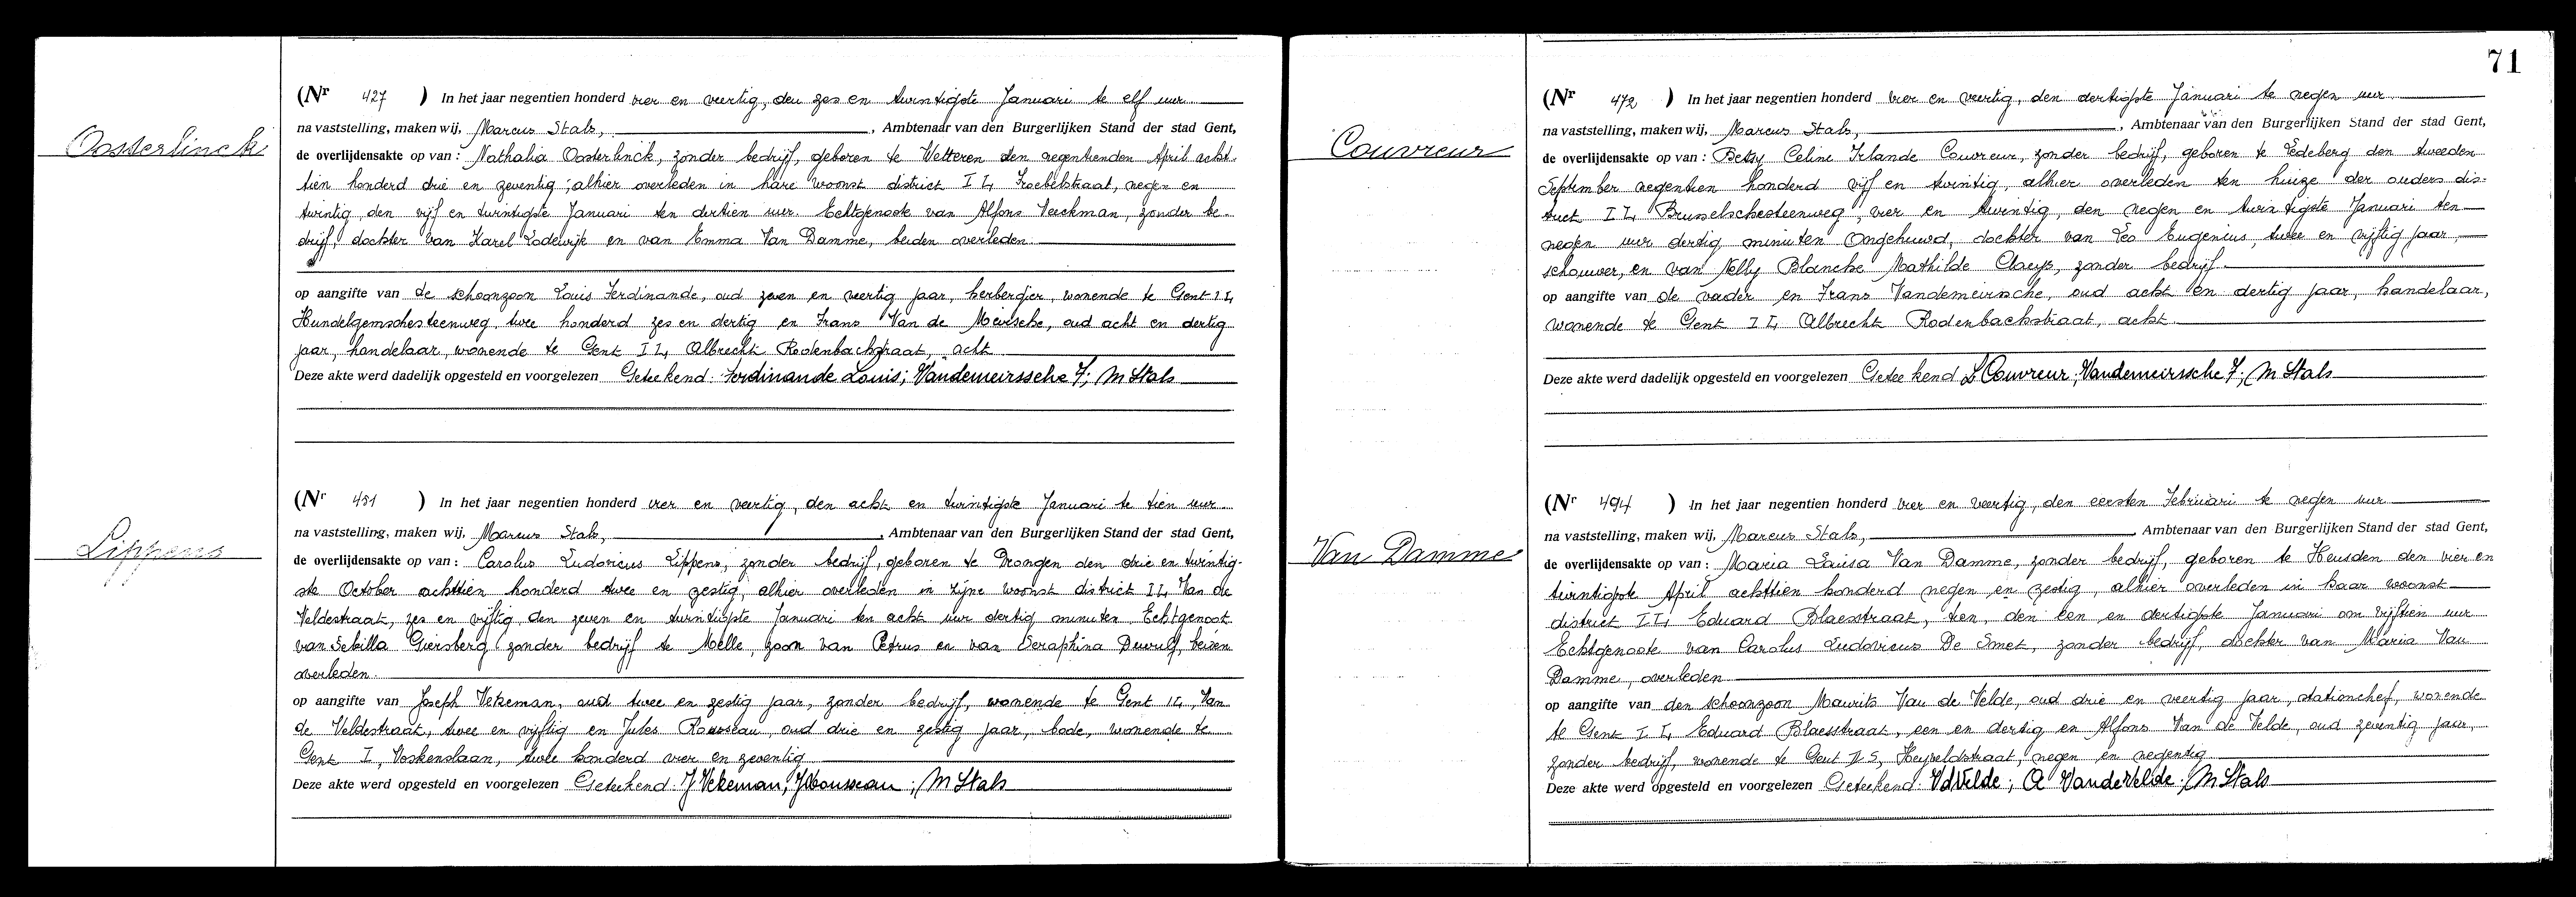 Oosterlinck
(Nr 427 ) In het jaar negentien honderd vier en veertig, den zes en twintigste Januari te elf uur
na vaststelling, maken wij, Marcus Stals, , Ambtenaar van den Burgerlijken Stand der stad Gent,
de overlijdensakte op van : Nathalia Oosterlinck, zonder bedrijf, geboren te Wetteren den negentienden April acht-
tien honderd drie en zeventig ; alhier overleden in hare woonst district I L, Froebelstraat, negen en
twintig, den vijf en twintigste Januari ten dertien uur. Echtgenoote van Alfons Verckman, zonder be-
drijf, dochter van Karel Lodewijk en van Emma Van Damme, beiden overleden.
op aangifte van de schoonzoon Louis Ferdinande, oud zeven en veertig jaar, herbergier, wonende te Gent I L,
Hundelgemschesteenweg, twee honderd zes en dertig en Frans Van de Meirsche, oud acht en dertig
jaar, handelaar, wonende te Gent I L, Albrecht Rodenbachstraat, acht
Deze akte werd dadelijk opgesteld en voorgelezen Geteekend: Ferdinande Louis; Vandemeirssche F; M Stals
Lippens
(Nr 451 ) In het jaar negentien honderd vier en veertig, den acht en twintigste Januari te tien uur
na vaststelling, maken wij, Marcus Stals, , Ambtenaar van den Burgerlijken Stand der stad Gent,
de overlijdensakte op van : Carolus Ludovicus Lippens, zonder bedrijf, geboren te Drongen den drie en twintig-
ste October achttien honderd twee en zestig, alhier overleden in zijne woonst district I L, Van de
Veldestraat, zes en vijftig den zeven en twintigste Januari ten acht uur dertig minuten. Echtgenoot
van Sebilla Giersberg zonder bedrijf te Melle, zoon van Petrus en van Seraphina Dewulf, beiden
overleden.
op aangifte van Joseph Vekeman, oud twee en zestig jaar, zonder bedrijf, wonende te Gent I L, Van
de Veldestraat, twee en vijftig en Jules Rousseau, oud drie en zestig jaar, bode, wonende te
Gent I, Voskenslaan, twee honderd vier en zeventig
Deze akte werd opgesteld en voorgelezen Geteekend: J Vekeman; J Rousseau; M Stals
71
Couvreur
(Nr 472 ) In het jaar negentien honderd vier en veertig, den dertigste Januari te negen uur
na vaststelling, maken wij, Marcus Stals, , Ambtenaar van den Burgerlijken Stand der stad Gent,
de overlijdensakte op van : Betsy Celine Irlande Couvreur, zonder bedrijf, geboren te Ledeberg den tweeden
September negentien honderd vijf en twintig, alhier overleden ten huize der ouders dis-
trict I L, Brusselschesteenweg, vier en twintig, den negen en twintigste Januari ten
negen uur dertig minuten Ongehuwd, dochter van Leo Eugenius, twee en vijftig jaar,
schouwer, en van Nelly Blanche Mathilde Claeys, zonder bedrijf.
op aangifte van de vader en Frans Vandemeirsche, oud acht en dertig jaar, handelaar,
wonende te Gent I L, Albrecht Rodenbachstraat, acht.
Deze akte werd dadelijk opgesteld en voorgelezen Geteekend L Couvreur; Vandemeirssche F; M Stals
Van Damme
(Nr 494 ) In het jaar negentien honderd vier en veertig, den eersten Februari te negen uur
na vaststelling, maken wij, Marcus Stals, , Ambtenaar van den Burgerlijken Stand der stad Gent,
de overlijdensakte op van : Maria Louisa Van Damme, zonder bedrijf, geboren te Heusden den vier en
twintigste April achttien honderd negen en zestig, alhier overleden in haar woonst
district I L, Eduard Blaesstraat, tien, den een en dertigste Januari om vijftien uur
Echtgenoote van Carolus Ludovicus De Smet, zonder bedrijf, dochter van Maria Van
Damme, overleden
op aangifte van den schoonzoon Maurits Van de Velde, oud drie en veertig jaar, stationchef, wonende
te Gent I L, Eduard Blaesstraat, een en dertig en Alfons Van de Velde, oud zeventig jaar,
zonder bedrijf, wonende te Gent II S, Heyveldstraat, negen en negentig
Deze akte werd opgesteld en voorgelezen Geteekend: VdVelde; A VandeVelde; M Stals